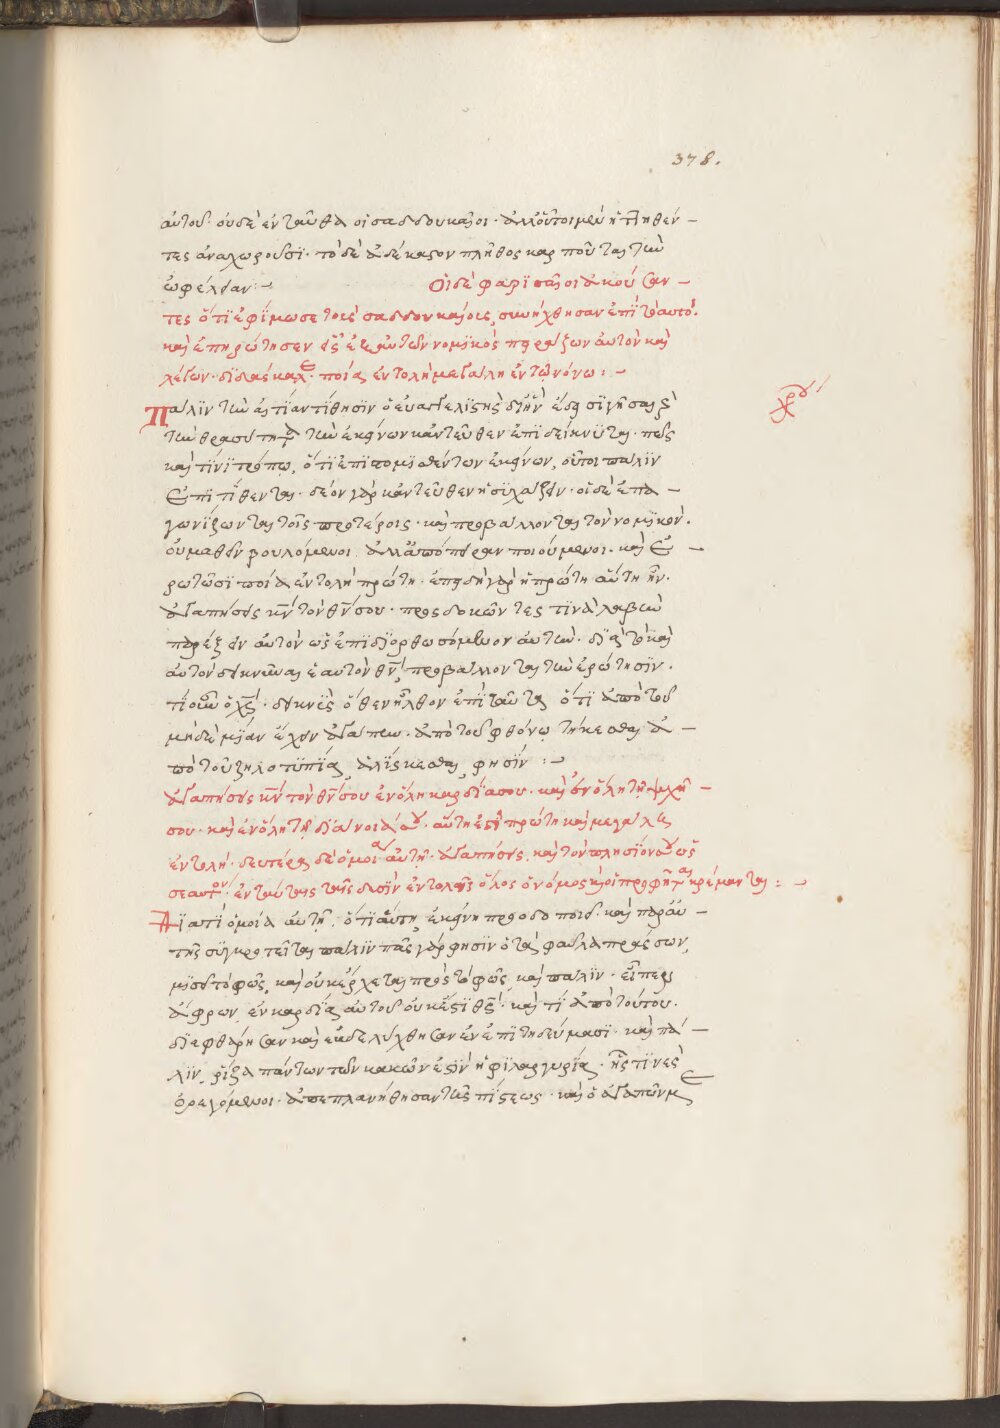 378.
αὐτοῦ· οὐδὲ ἐνταῦθα οἱ σαδδουκαῖοι· ἀλλ' οὗτοι μὲν ἡττηθέν –
τες ἀναχωροῦσϊ· τὸ δὲ ἀδέκαστον πλῆθος καρποῦται τὴν
ὠφέλειαν :– Οἱ δὲ φαρϊσαῖοι ἀκούσαν –
τες ὅτϊ ἐφΐμωσε τοὺς σαδδουκαίους, συνήχθησαν ἐπὶ τὸ αυτό.
καὶ ἐπηρώτησεν εἷς ἐξ αὐτῶν νομϊκὸς πειράζων αὐτὸν καὶ
λέγων· δϊδάσκαλε· ποία ἐντολὴ μεγάλη ἐν τῷ νόμω :–
Πάλϊν τὴν ἀντίθησϊν ὁ εὐαγγελϊστὴς
τὴν θρασύτητα τὴν ἐκείνων κἀντεῦθεν ἐπϊδείκνϋται· πῶς
καὶ τίνϊ τρόπω, ὅτϊ ἐπϊστομϊσθέντων ἐκείνων, οὗτοι πάλϊν
ἐπϊτίθενται· δέον γὰρ κἀντεῦθεν ἡσϊχάζειν· οἱ δὲ ἐπα –
γωνΐζωνται τοῖς προτέροις· καὶ προβάλλονται τὸν νομϊκόν.
οὐ μαθεῖν βουλόμενοι ἀλλ' ἀπόπειραν ποιούμενοι· καὶ ἐ –
ρωτῶσϊ ποία ἐντολὴ πρώτη· ἐπειδὴ γὰρ ἡ πρώτη αὕτη ἦν.
ἀγαπήσεις κν τὸν θν σου· προσδοκῶντες τϊνὰ λαβὴν
παρέξειν αὐτὸν ὡς ἐπιδϊορθωσόμενον αὐτὴν· δϊὰ τὸ καὶ
αὐτὸν δεικνῦναι ἑαυτὸν θν, προβάλλονται τὴν ἐρώτησϊν.
τί οὖν ὁ χς· δεικνὺς ὅθεν ἦλθον ἐπὶ ταῦτα ὅτϊ ἀπὸ τοῦ
μηδεμϊὰν ἔχειν ἀγάπην· ἀπὸ τοῦ φθόνω τήκεσθαι ἀ –
πὸ τοῦ ζηλοτϋπίας ἁλϊσκεσθαι, φησΐν :–
ἀγαπήσεις κν τὸν θν σου ἐν ὅλη καρδία σου· καὶ ἐν ὅλη τῇ ψυχῇ –
σου· καὶ ἐν ὅλη τῇ δϊανοία σου· αὕτη ἐστὶ πρώτη καὶ μεγάλη
ἐντολή· δευτέρα δὲ ὁμοία αὐτῇ· ἀγαπήσεις, καὶ τὸν πλησίον σου ὡς
σεαυτόν· ἐν ταύταις ταῖς δυσὶν ἐντολαῖς ὅλος ὁ νόμος καὶ οἱ προφῆται κρέμανται :–
Δϊατί ὁμοία αὐτῇ, ὅτϊ αὕτη ἐκείνη προοδοποιεῖ· καὶ παρ' αὐ –
τῆς συγκροτεῖται πάλϊν πᾶς γάρ φησϊν ὁ τὰ φαῦλα πράσσων,
μϊσεῖ τὸ φῶς, καὶ οὐκ ἔρχεται πρὸς τὸ φῶς, καὶ πάλϊν· εἶπεν
ἄφρων ἐν καρδία αὐτοῦ οὐκ ἔστϊ θς· καὶ τί ἀπὸ τούτου.
δϊεφθάρησαν καὶ ἐβδελύχθησαν ἐν ἐπϊτηδεύμασϊ· καὶ πά –
λϊν, ῥΐζα πάντων τῶν κακῶν ἐστϊν ἡ φϊλαργυρία, ἧς τϊνὲς
ὀρεγόμενοι· ἀπεπλανήθησαν τῆς πΐστεως· καὶ ὁ ἀγαπῶν με